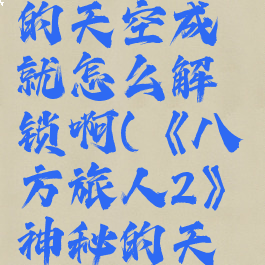 的天空成
就怎么解
锁啊(《八
方旅人2》
神秘的天